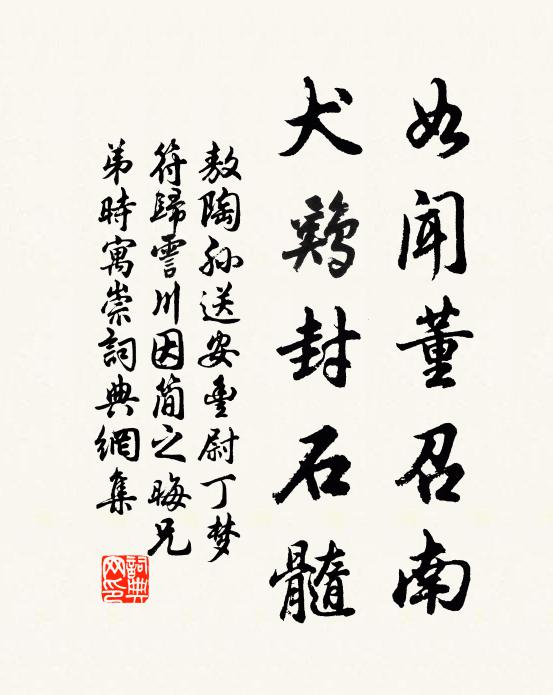 如闻董召南
犬鷄封石髓
敖陶孙送安豊尉丁梦
符歸霅川因简之晦兄
弟時寓崇詞典網集
詞典网印